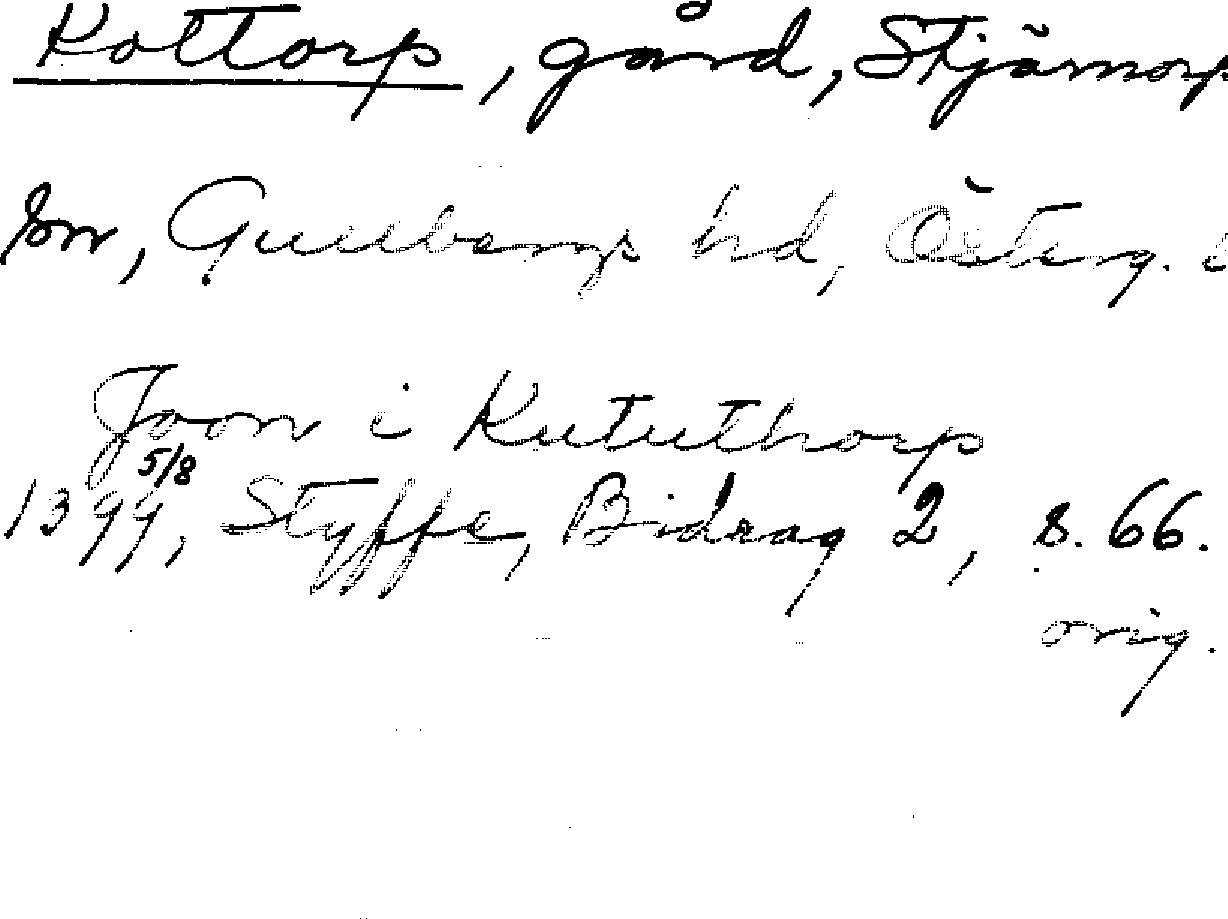 Kottorp, gård, Stjärnorp
sn, Gullbergs hd, Österg.
Joon i Kututhorp
5/8
1399, Styffe, Bidrag 2, s. 66.
orig.